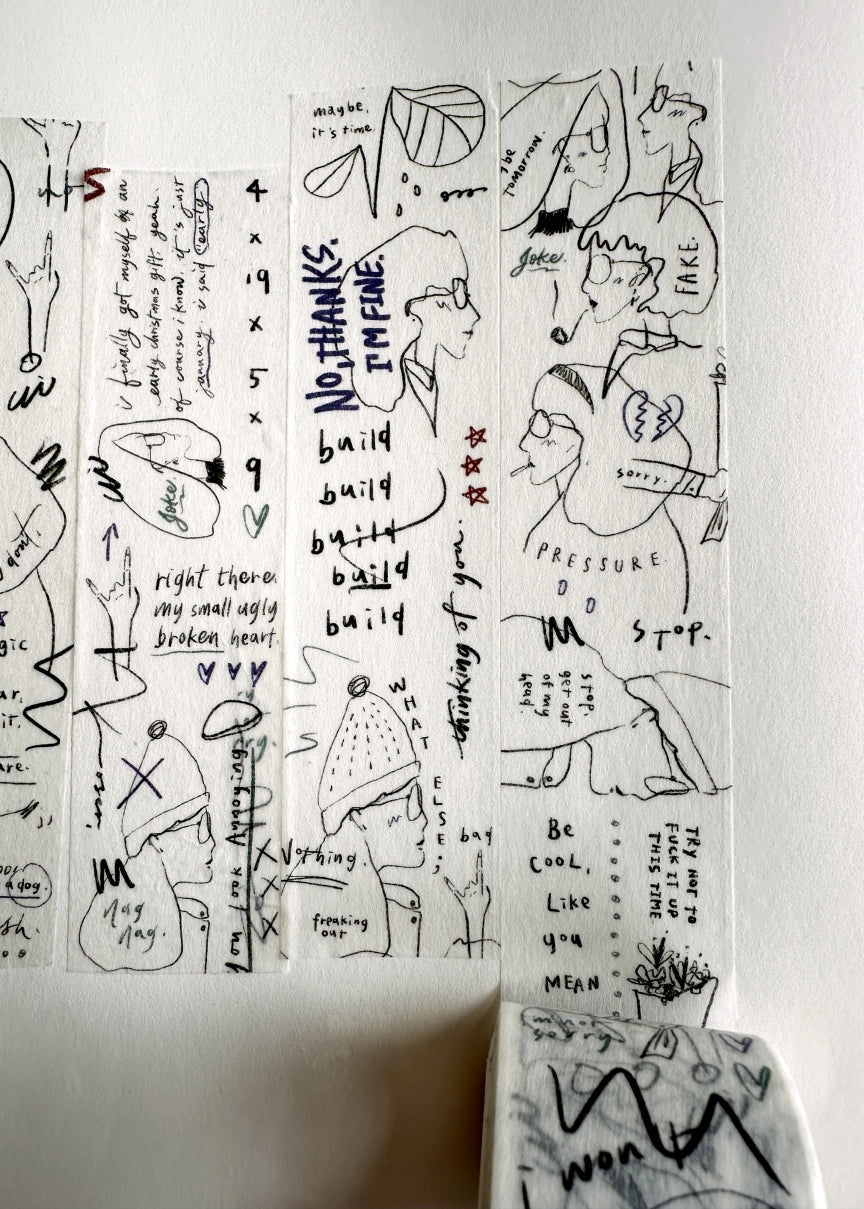 5
dont.
gic
ar,
it.
are.
a dog.
sh.
i finally got myself an
early christmas gift. yeah.
of course i know, it's just
january. i said early
4
x
19
x
5
x
9
Joke.
right there.
my small ugly
broken heart.
nag
nag.
You Look Annoying
maybe,
it's time.
NO, THANKS.
I'M FINE.
build
build
build
build
build
thinking of you.
WHAT
ELSE;
Nothing.
freaking
out
bad
I be
TOMORROW.
Joke.
FAKE.
sorry.
PRESSURE.
STOP.
stop.
get out
of my
head.
Be
COOL,
Like
you
MEAN
TRY NOT TO
FUCK IT UP
THIS TIME
sorry
won